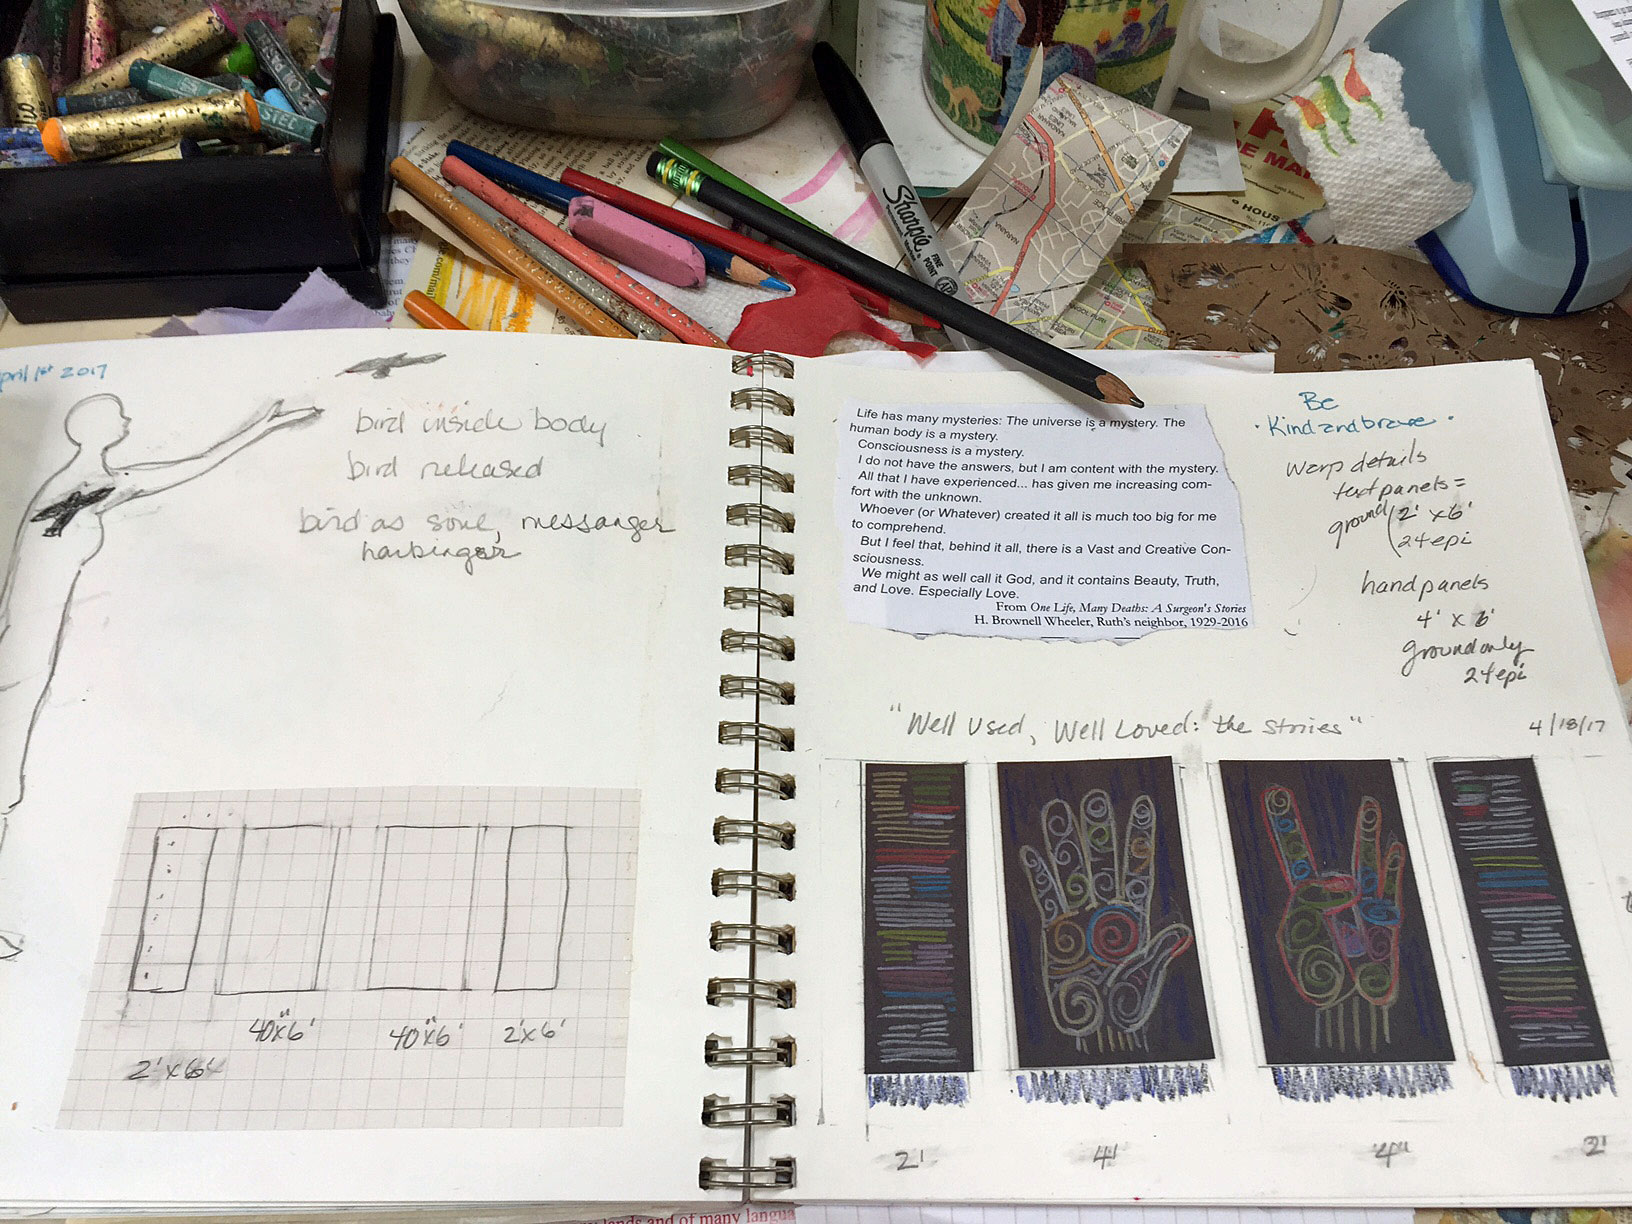 PASTEL
Sharpie
FINE
POINT
AP
NARAINA
DE MA
HOUS
pril 1st 2017
bird inside body
bird released
bird as sone, messanger
harbinger
40"x6'
40"x6'
2'x6'
2'x6'
Life has many mysteries: The universe is a mystery. The
human body is a mystery.
Consciousness is a mystery.
I do not have the answers, but I am content with the mystery.
All that I have experienced... has given me increasing com-
fort with the unknown.
Whoever (or Whatever) created it all is much too big for me
to comprehend.
But I feel that, behind it all, there is a Vast and Creative Con-
sciousness.
We might as well call it God, and it contains Beauty, Truth,
and Love. Especially Love.
From One Life, Many Deaths: A Surgeon's Stories
H. Brownell Wheeler, Ruth's neighbor, 1929-2016
Be
· Kind and brave ·
warp details
text panels =
ground 2' x 6'
24 epi
hand panels
4' x 6'
ground only
24 epi
"Well Used, Well Loved: the Stories"
4/18/17
2'
4'
4'
2'
lands and of many langua